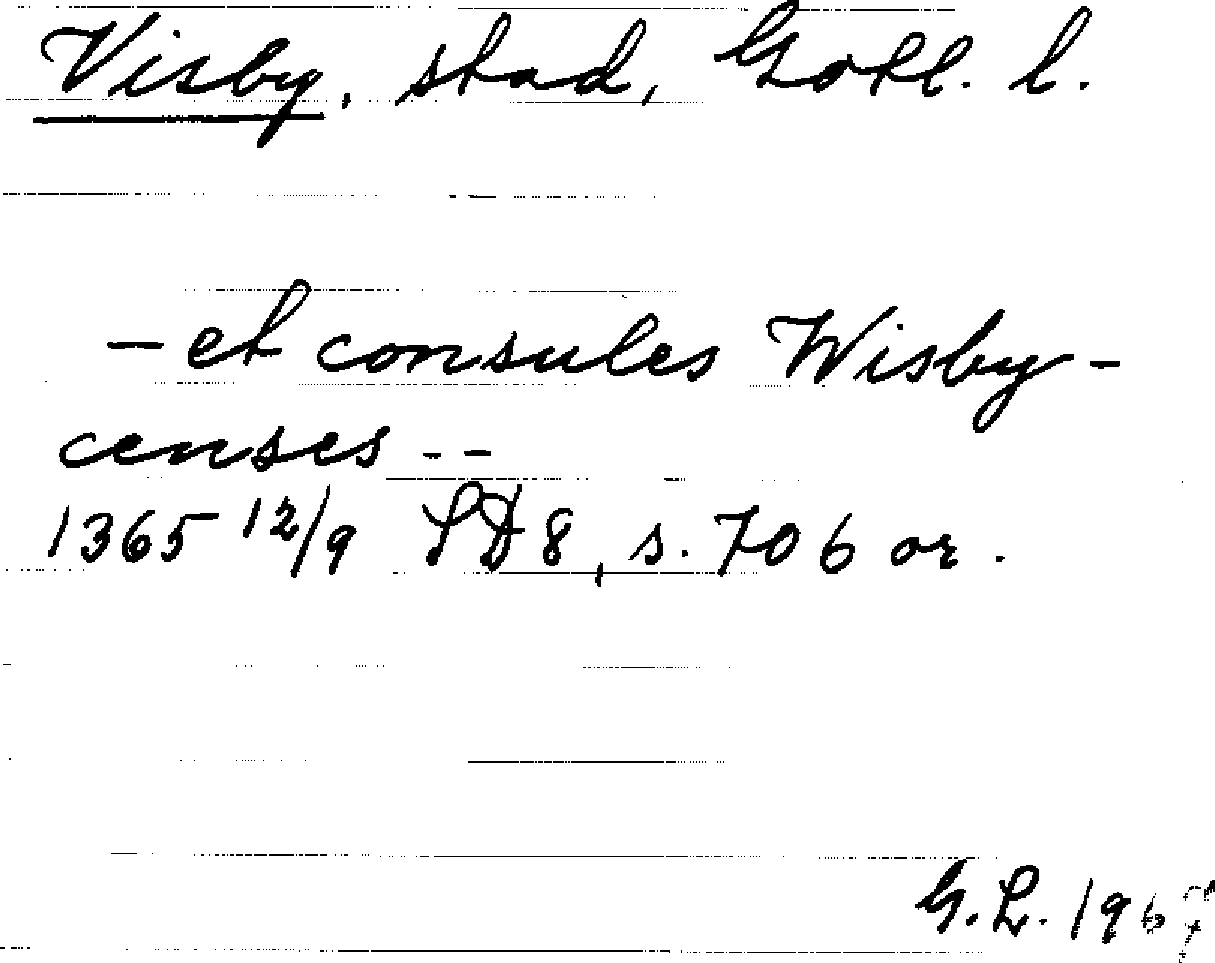 Visby, stad, Gotl. l.
- et consules Wisby-
censes --
1365 12/9 SD 8, s. 706 or.
G.L. 1967